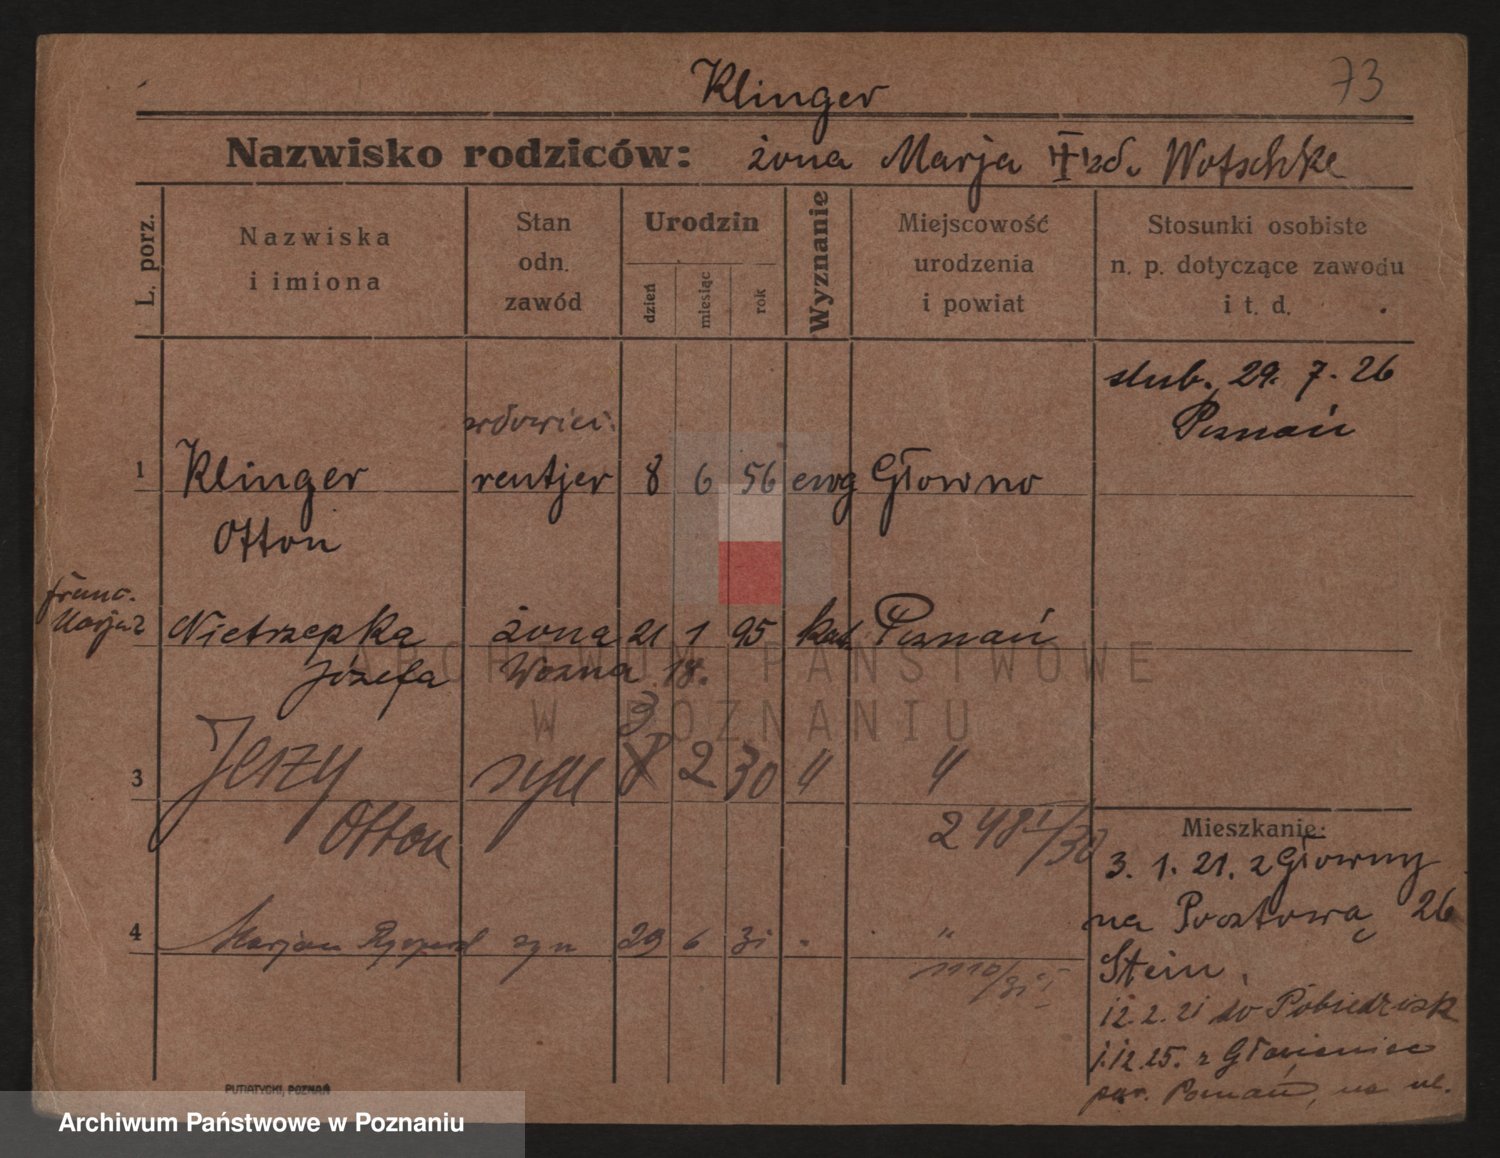 Klinger 73
Nazwisko rodziców: żona Marja zd. Wotschke
L. porz.
Nazwiska
i imiona
Stan
odn.
zawód
Urodzin
dzień
miesiąc
rok
Wyznanie
Miejscowość
urodzenia
i powiat
Stosunki osobiste
n. p. dotyczące zawodu
i t. d.
slub. 29. 7. 26
Poznań
1 Klinger rentjer 8 6 56 ewg Głowno
Otton
Marja
2 Nietrzepka żona 21 1 95 kat. Poznań
Józefa Wozna 18.
3
3 Jerzy syn 8 2 30 " "
Otton
4 Marjan Ryszard syn 29 6 31 "
Mieszkanie:
3. 1. 21. z Głowny
na Pocztową 26
Stein.
12. 2. 21 do Pobiedzisk
1.12.25. z
pow. Poznań, na ul.
PUTIATYCKI, POZNAŃ
ARCHIWUM PAŃSTWOWE
W POZNANIU
Archiwum Państwowe w Poznaniu